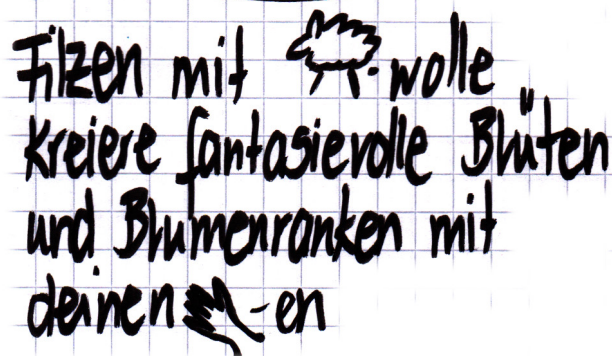 Filzen mit -wolle
kreiere fantasievolle Blüten
und Blumenranken mit
deinen -en